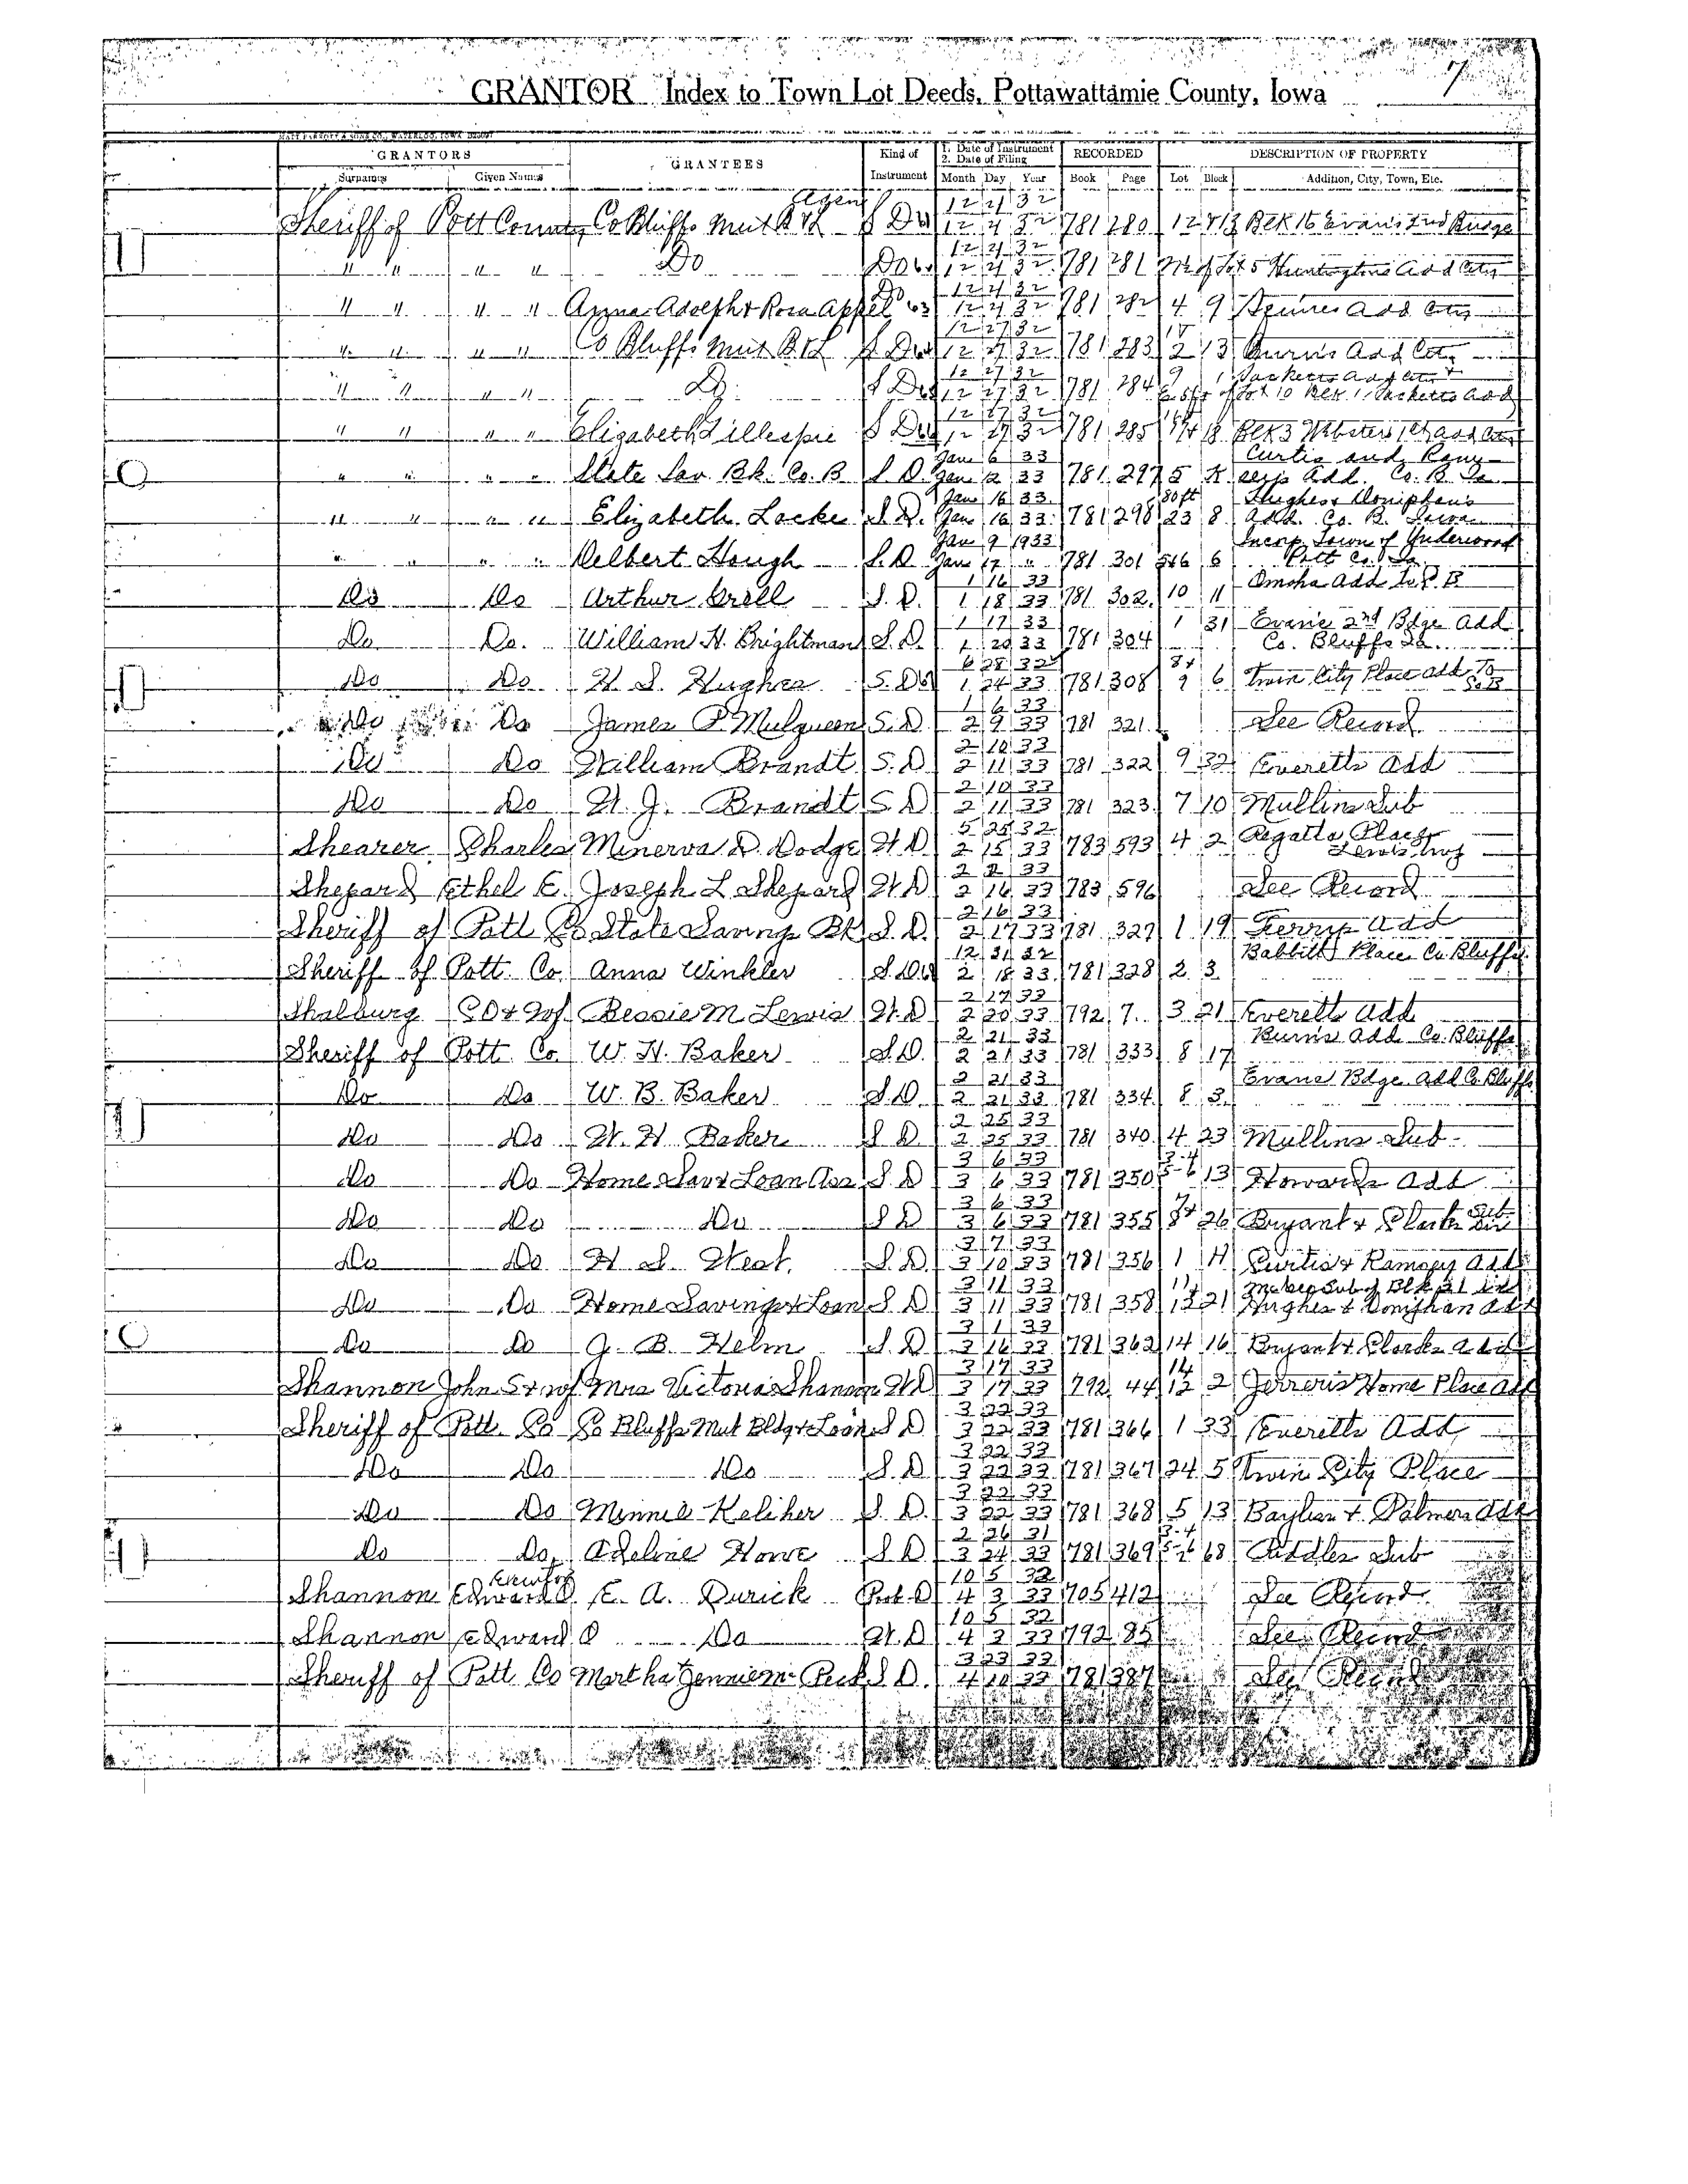 7
GRANTOR Index to Town Lot Deeds, Pottawattamie County, Iowa
MATT PARROTT & SONS CO., WATERLOO, IOWA
GRANTORS GRANTEES Kind of Instrument 1. Date of Instrument 2. Date of Filing RECORDED DESCRIPTION OF PROPERTY
Surnames Given Names Month Day Year Book Page Lot Block Addition, City, Town, Etc.
12 21 32
Sheriff of Pott County Co Bluffs Mut B & L 781 280 12 & 13 Blk 16 Evans 2nd Bridge
" " " " Do 781 281 5 Huntingtons Add City
" " " " Anna Adolph & Rosa Appel 781 282 4 9 Squires Add City
12 27 32
" " " " Co Bluffs Mut B & L 12 27 32 781 283 2 13 Burns Add City
12 27 32 9 1 Sacketts Add City &
" " " " Do 12 27 32 781 284 of Lot 10 Blk 1 Sacketts Add
12 27 32
" " " " Elizabeth Gillespie 12 27 32 781 285 18 Blk 3 Websters 1st Add City
Jan 6 33 Curtis and Ram-
" " " " State Sav. Bk. Co. B S. D. Jan 12 33 781 297 5 K seys Add. Co. B. Ia
Jan 16 33 80 ft Hughes & Doniphan's
" " " " Elizabeth Locke S. D. Jan 16 33 781 298 23 8 Add. Co. B. Iowa
Jan 9 1933 Incorp. Town of Underwood
" " " " Delbert Hough S. D Jan 17 " 781 301 5&6 6 Pott Co. Ia
1 16 33 Omaha Add to C. B
Do Do Arthur Grell S. D. 1 18 33 781 302 10 11
1 17 33 1 31 Evans 2nd Bdge Add
Do Do. William H. Brightman S. D. 1 20 33 781 304 Co. Bluffs Ia.
6 28 32 8 &
Do Do H. S. Hughes 1 24 33 781 308 9 6 Twin City Place Add To Co B
1 6 33
Do Do James P. Mulqueen S. D. 2 9 33 781 321 See Record
2 10 33
Do Do William Brandt S. D 2 11 33 781 322 9 32 Everetts Add
2 10 33
Do Do W. J. Brandt S. D 2 11 33 781 323 7 10 Mullins Sub
5 25 32 Regatta Place
Shearer Charles Minerva D. Dodge W. D 2 15 33 783 593 4 2 Lewis Twp
2 2 33
Shepard Ethel E. Joseph L Shepard W D 2 16 33 783 596 See Record
2 16 33
Sheriff of Pott Co State Savings Bk S. D. 2 17 33 781 327 1 19 Ferrys Add
12 31 32 Babbitts Place Co. Bluffs
Sheriff of Pott. Co. Anna Winkler 2 18 33 781 328 2 3
2 17 33
Shalburg C D & Wf Bessie M Lewis W. D 2 20 33 792 7 3 21 Everetts Add
2 21 33 Burns Add Co. Bluffs
Sheriff of Pott. Co W. H. Baker S. D. 2 21 33 781 333 8 17
2 21 33 Evans Bdge. Add Co. Bluffs
Do Do W. B. Baker S. D. 2 21 33 781 334 8 3
2 25 33
Do Do W. H. Baker S D 2 25 33 781 340 4 23 Mullins Sub
3 6 33 3-4
Do Do Home Sav & Loan Ass S. D 3 6 33 781 350 5-6 13 Howards Add
3 6 33 7 &
Do Do Do S D 3 6 33 781 355 8 26 Bryant & Clarks Sub Div
3 7 33
Do Do H. S. West. S. D. 3 10 33 781 356 1 H Curtis & Ramsey Add
3 11 33 11 Sub of Blk 21 in
Do Do Home Savings & Loan S. D 3 11 33 781 358 21 Hughes & Doniphan Add
3 1 33
Do Do J. B. Helm S. D 3 16 33 781 362 14 16 Bryant & Clarks Add
3 17 33 14
Shannon John S & wf Mrs Victoria Shannon W D 3 17 33 792 44 12 2 Home Place Add
3 22 33
Sheriff of Pott. Co Co Bluffs Mut Bldg & Loan S D 3 22 33 781 366 1 33 Everetts Add
3 22 33
Do Do Do S. D 3 22 33 781 367 24 5 Twin City Place
3 22 33
Do Do Minnie Keliher S. D. 3 22 33 781 368 5 13 Bayliss & Palmers Add
2 26 31 3-4
Do Do. Adeline Howe S D 3 24 33 781 369 5-6 68 Riddles Sub
Executor 10 5 32
Shannon Edward O E. A. Durick 4 3 33 705 412 See Record
10 5 32
Shannon Edward O Do W. D 4 3 33 792 85 See Record
3 23 33
Sheriff of Pott Co Martha & Jennie Mc Peck S. D. 4 10 33 781 387 See Record